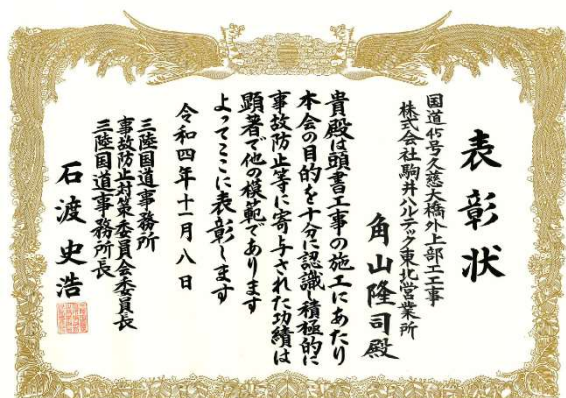 表彰状
国道45号久慈大橋外上部工工事
株式会社駒井ハルテック東北営業所
角山隆司殿
貴殿は頭書工事の施工にあたり
本会の目的を十分に認識し積極的に
事故防止等に寄与された功績は
顕著で他の模範であります
よってここに表彰します
令和四年十一月八日
三陸国道事務所
事故防止対策委員会委員長
三陸国道事務所長
石渡史浩